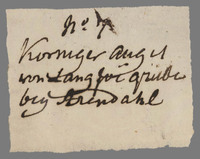 No 7
Korniger Augit
von Langsoe grube
bey Arendahl